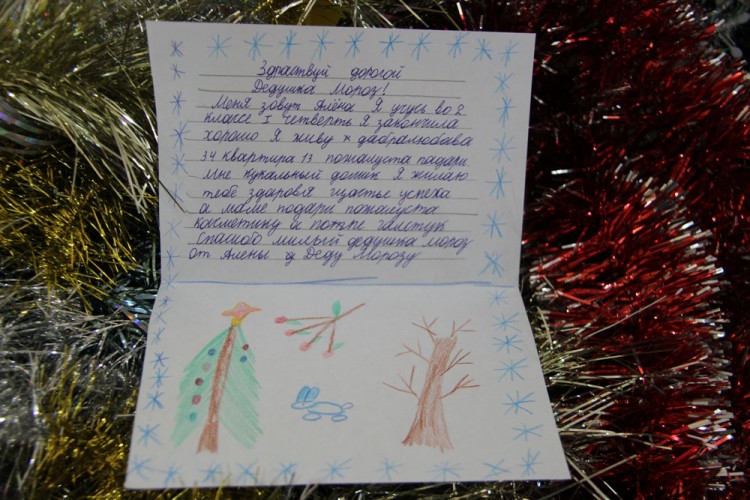 Здраствуй дорогой
Дедушка Мороз!
Меня зовут Алёна Я учусь во 2
класе I четверть Я закончила
хорошо Я живу х дабралюбава
34 квартира 13 пожалуста падари
мне кукальный домик Я жилаю
тебе здоровя щастье успеха
а маме подари пожалуста
косметику а потпе галстук
Спасибо милый дедушка мороз
от Алены Деду Морозу